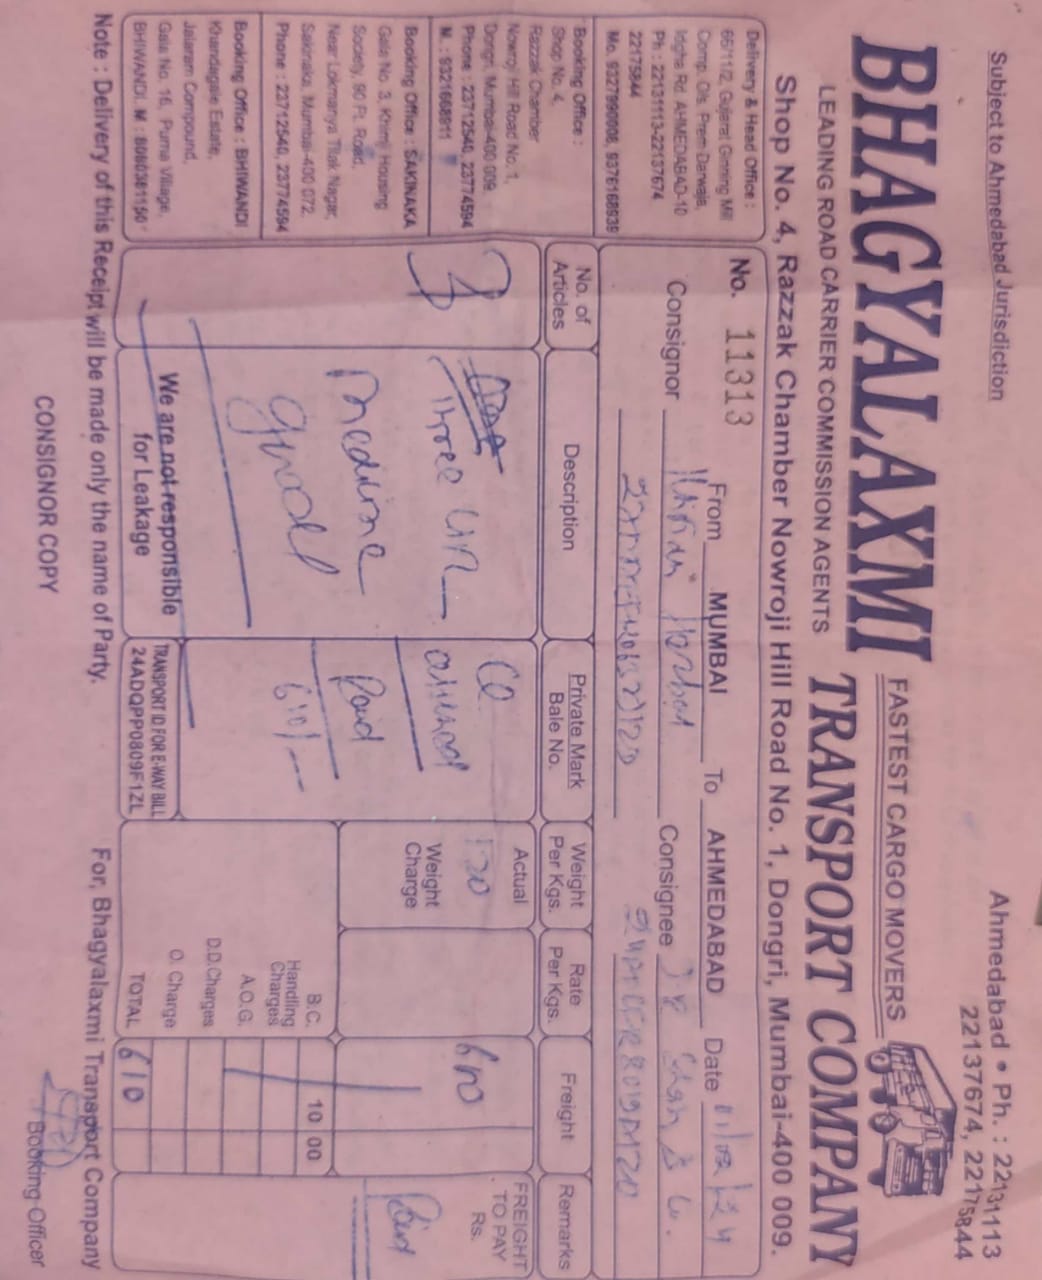 Subject to Ahmedabad Jurisdiction
Ahmedabad • Ph. : 22131113
22137674, 22175844
BHAGYALAXMI
FASTEST CARGO MOVERS
TRANSPORT COMPANY
LEADING ROAD CARRIER COMMISSION AGENTS
Shop No. 4, Razzak Chamber Nowroji Hill Road No. 1, Dongri, Mumbai-400 009.
Delivery & Head Office :
66/11/2, Gujarat Ginning Mill
Comp. O/s. Prem Darwaja,
Idgha Rd. AHMEDABAD-10
Ph : 22131113-22137674
22175844
Mo. 9327990908, 9376168939
Booking Office :
Shop No. 4,
Razzak Chamber
Nowroji Hill Road No. 1,
Dongri, Mumbai-400 009.
Phone : 23712540, 23774594
M : 9321668811
Booking Office : SAKINAKA
Gala No. 3, Khimji Housing
Society, 90 Ft. Road,
Near Lokmanya Tilak Nagar,
Sakinaka, Mumbai-400 072.
Phone : 23712540, 23774594
Booking Office : BHIWANDI
Khandagale Estate,
Jalaram Compound,
Gala No. 16, Purna Village,
BHIWANDI. M : 8080381150
No. 11313 From MUMBAI To AHMEDABAD Date
Consignor Consignee
No. of Articles
Description
Private Mark Bale No.
Weight Per Kgs.
Rate Per Kgs.
Freight
Remarks
3
Three
Medicine
good
Paid
610/-
Actual
120
Weight Charge
600
FREIGHT TO PAY Rs.
Paid
B.C. 10 00
Handling Charges
A.O.G.
D.D.Charges
O. Charge
TOTAL 610
We are not responsible for Leakage
TRANSPORT ID FOR E-WAY BILL
24ADQPP0809F1ZL
Note : Delivery of this Receipt will be made only the name of Party.
For, Bhagyalaxmi Transport Company
CONSIGNOR COPY
Booking Officer